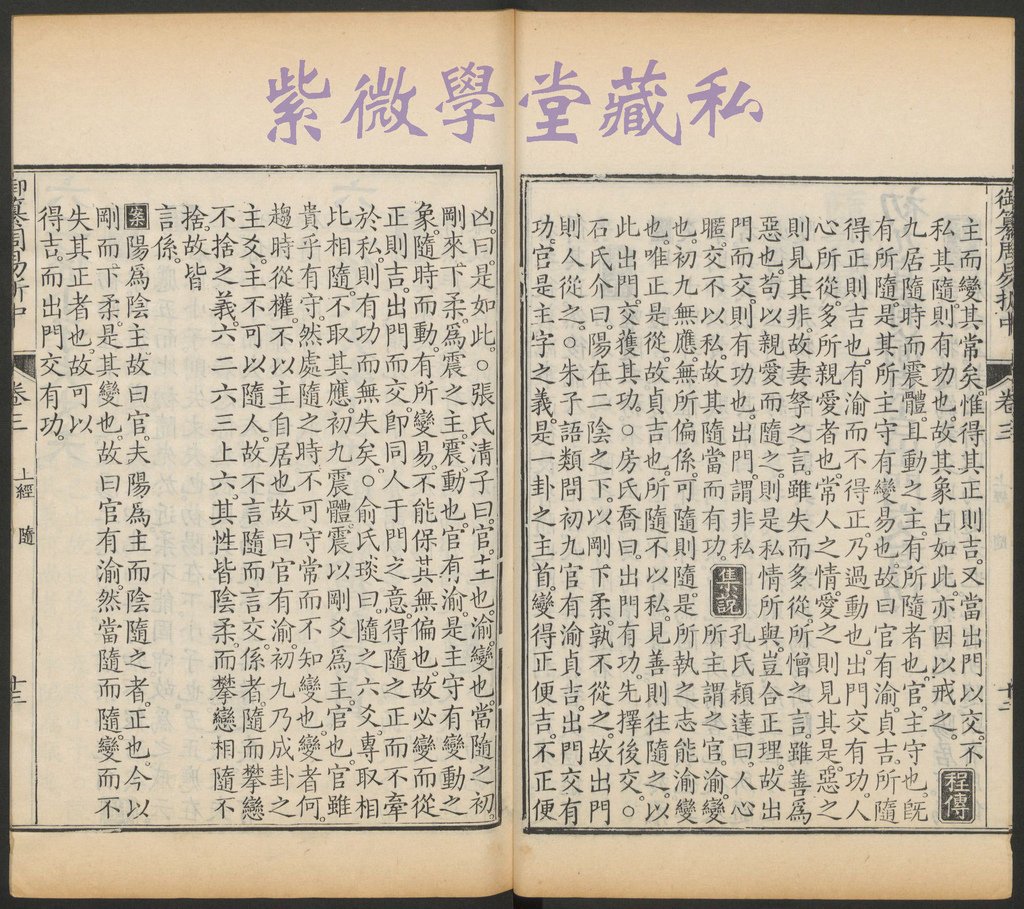 紫微學堂藏私
御纂周易折中
卷三
主而變其常矣惟得其正則吉又當出門以交不
私其隨則有功也故其象占如此亦因以戒之程傳
九居隨時而震體且動之主有所隨者也官主守也既
有所隨是其所主守有變易也故曰官有渝貞吉所隨
得正則吉也有渝而不得正乃過動也出門交有功人
心所從多所親愛者也常人之情愛之則見其是惡之
則見其非故妻孥之言雖失而多從所憎之言雖善爲
惡也茍以親愛而隨之則是私情所與豈合正理故出
門而交則有功也出門謂非私
暱交不以私故其隨當而有功集說孔氏穎達曰人心
所主謂之官渝變
也初九無應無所偏係可隨則隨是所執之志能渝變
也唯正是從故貞吉也所隨不以私見善則往隨之以
此出門交獲其功○房氏喬曰出門有功先擇後交○
石氏介曰陽在二陰之下以剛下柔孰不從之故出門
則人從之○朱子語類問初九官有渝貞吉出門交有
功官是主字之義是一卦之主首變得正便吉不正便
凶曰是如此○張氏清子曰官主也渝變也當隨之初
剛來下柔爲震之主震動也官有渝是主守有變動之
象隨時而動有所變易不能保其無偏也故必變而從
正則吉出門而交卽同人于門之意得隨之正而不牽
於私則有功而無失矣○俞氏琰曰隨之六爻專取相
比相隨不取其應初九震體震以剛爻爲主官也官雖
貴乎有守然處隨之時不可守常而不知變也變者何
趨時從權不以主自居也故曰官有渝初九乃成卦之
主爻主不可以隨人故不言隨而言交係者隨而攀戀
不捨之義六二六三上六其性皆陰柔而攀戀相隨不
捨故皆
言係
案陽爲陰主故曰官夫陽爲主而陰隨之者正也今以
剛而下柔是其變也故曰官有渝然當隨而隨變而不
失其正者也故可以
得吉而出門交有功
御纂周易折中
卷三
上經
隨
十三